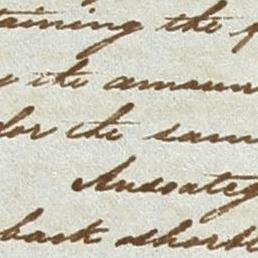 taining the
the amoun
for the sam
Anzoateg
back short